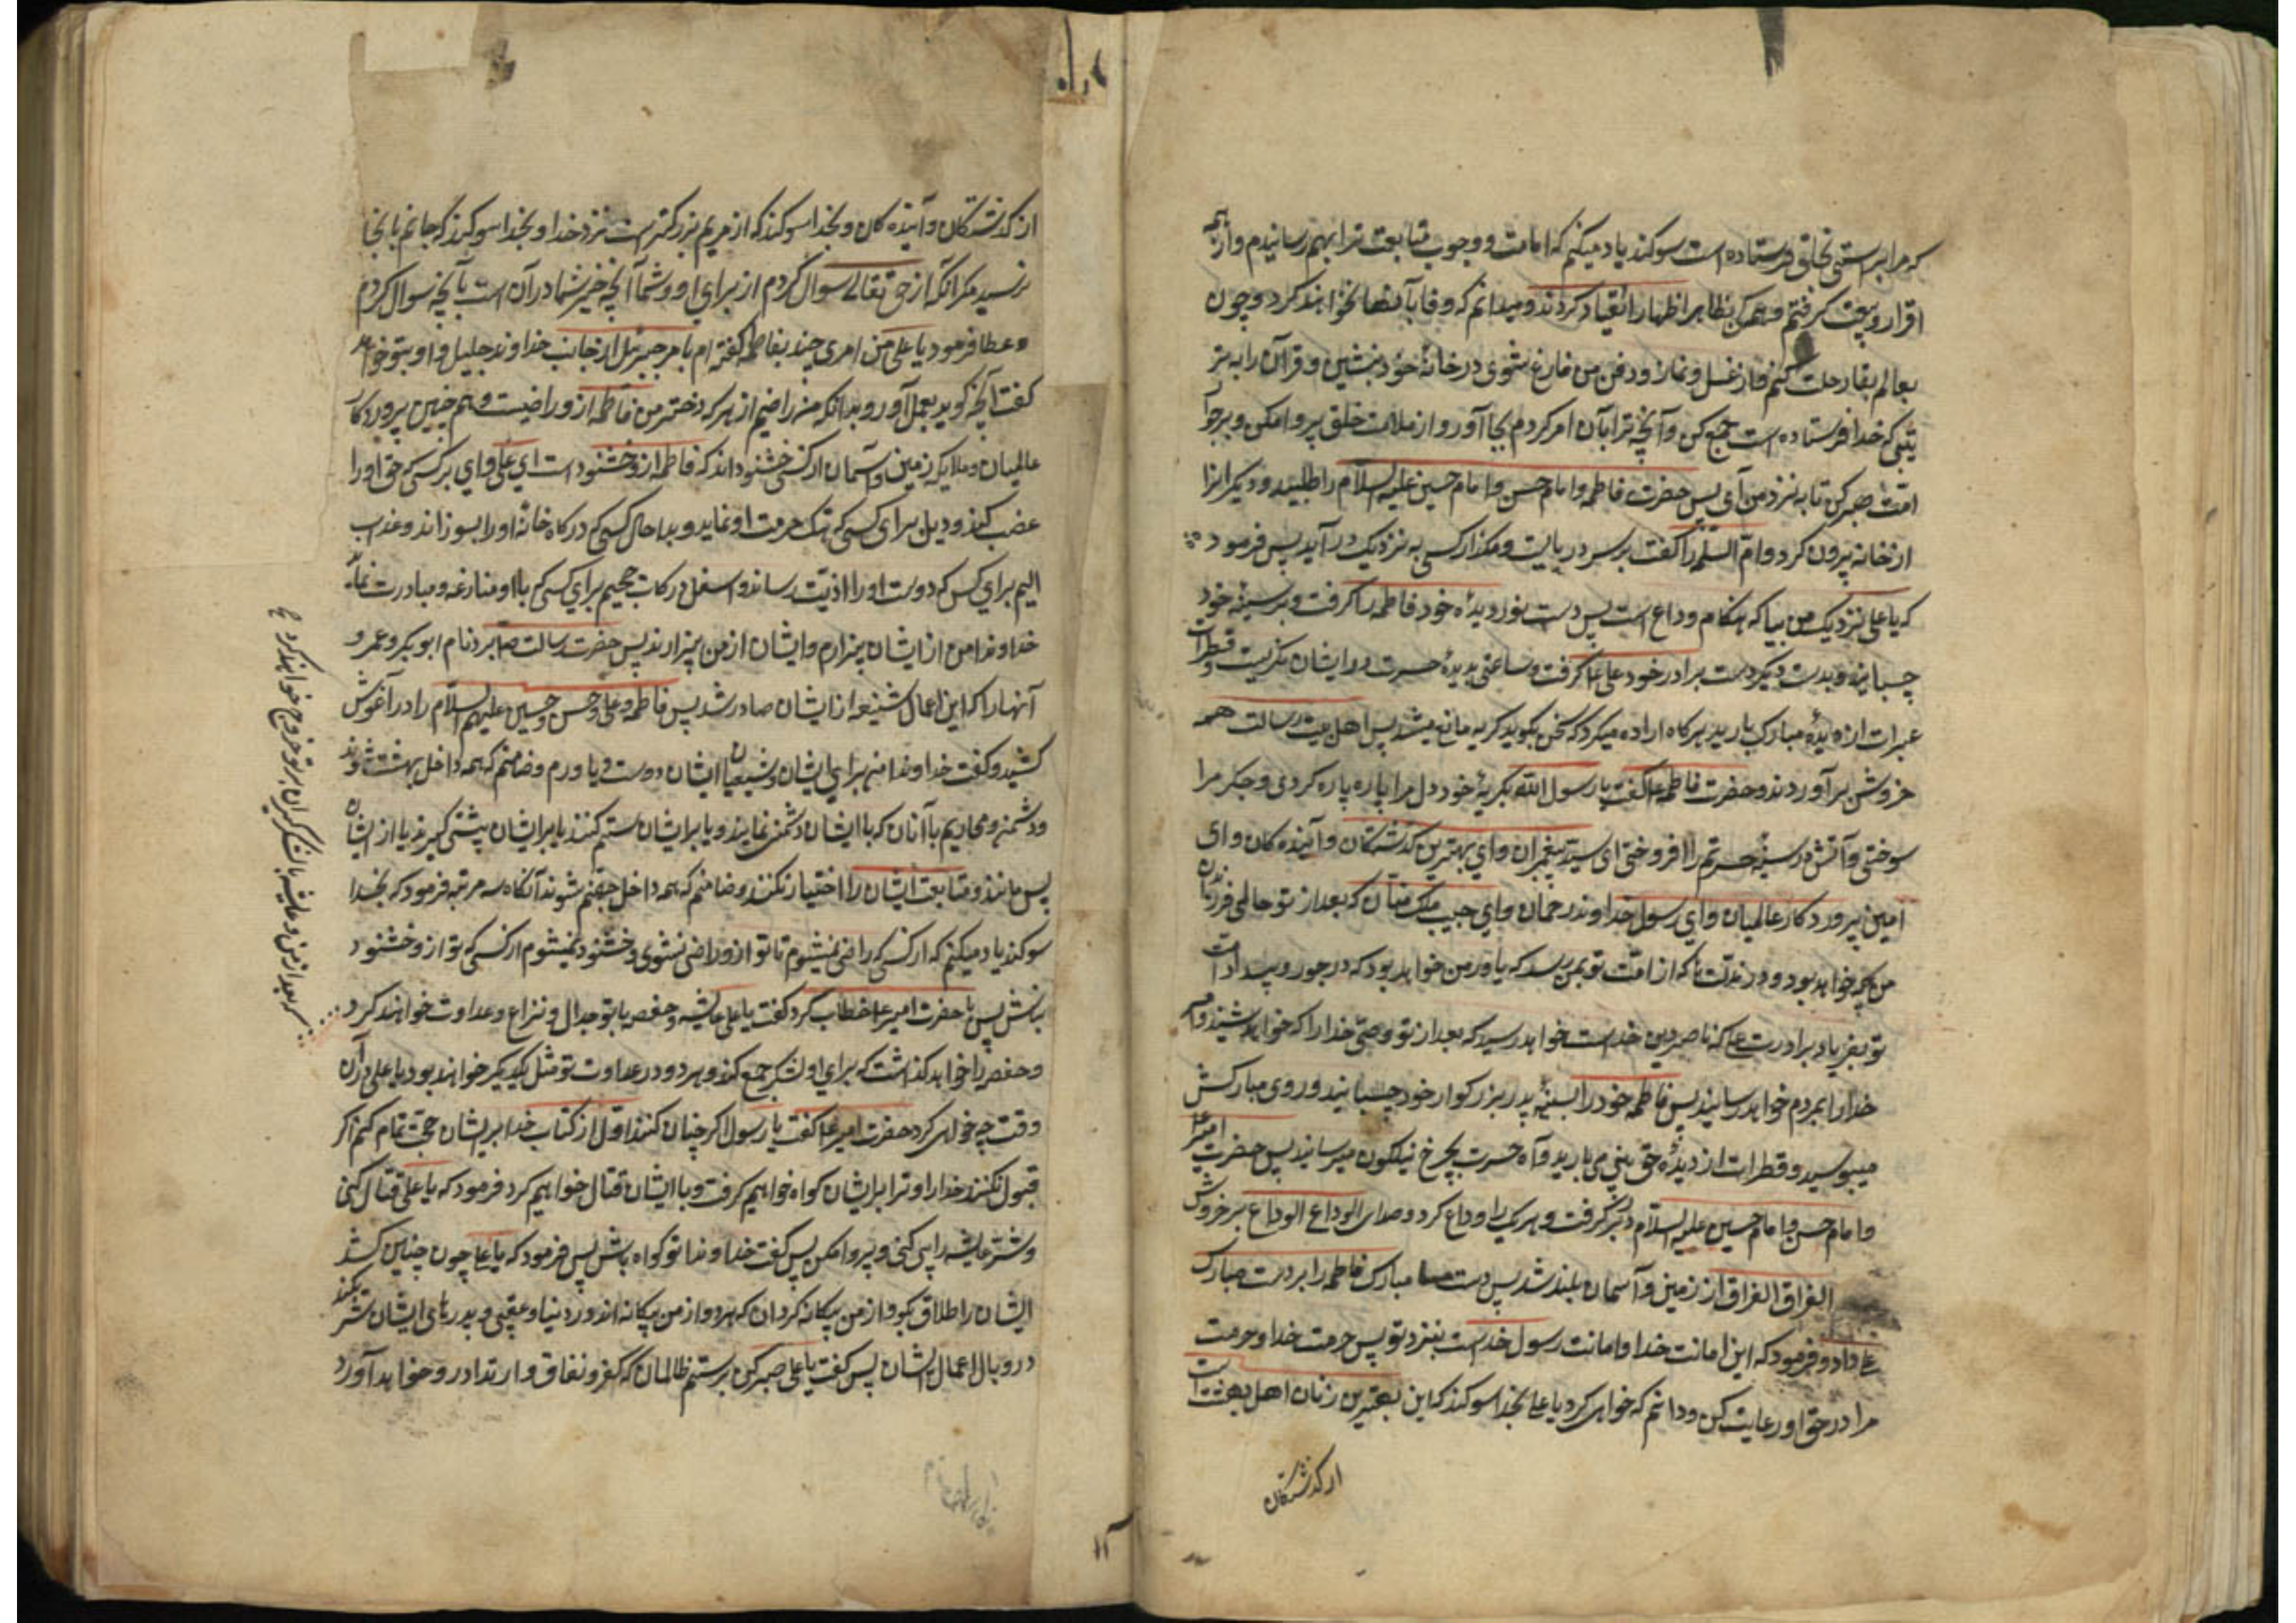 که مرا براستی بخلق فرستاده است سوکند یاد میکنم که امامت و وجوب متابعت ترا بهم رسانیدم و از همه
اقرار و بیعت کرفتم و همکی بظاهر اظهار انقیاد کردند و میدانم که وفا بآنها نخواهند کرد و چون
بعالم بقا رحلت کنم و از غسل و نماز و دفن من فارغ شوی در خانهٔ خود بنشین و قرآن را به تر
تیبی که خدا فرستاده است جمع کن و آنچه ترا بآن امر کردم بجا آور و از ملامت خلق پروا مکن و بر جوا
امت صبر کن تا به نزد من آی پس حضرت فاطمه و امام حسن و امام حسین علیه السلام را طلبید و دیکرانرا
از خانه بیرون کرد و امّ السلمه را کفت بر سر در بایست و مکذار کسی به نزدیک در آید پس فرمود
که یا علی نزدیک من بیا که هنکام وداع است پس دست نور دیدهٔ خود فاطمه را کرفت و بر سینهٔ خود
چسبانید و بدست دیکر دست برادر خود علی را کرفت و ساعتی بدیدهٔ حسرت در ایشان نکریست و قطرات
عبرات از دیدهٔ مبارک بارید هر کاه اراده میکرد که سخن بکوید کریه مانع میشد پس اهل بیت رسالت همه
خروش برآوردند و حضرت فاطمه ع کفت یا رسول الله بکریهٔ خود دل مرا پاره پاره کردی و جکر مرا
سوختی و آتش در سینهٔ حسرتم را افروختی ای سید پیغمبران و ای بهترین کذشتکان و آینده کان و ای
امین پروردکار عالمیان و ای رسول خداوند رحمان و ای حبیب ملک منان که بعد از تو حالی فرزندان
من چه خواهد بود و در مذلت که از امت تو بمن رسد که یاور من خواهد بود که در جور و بیداد امت
تو بفریاد برادرت علی که ناصر دین خداست خواهد رسید که بعد از تو وحی خدا را که خواهد شنید و امر
خدا را بمردم خواهد رسانید پس فاطمه خود را بسینهٔ پدر بزرکوار خود چسبانید و روی مبارکش
میبوسید و قطرات از دیدهٔ حق بینی می بارید و آه حسرت بچرخ نیلکون میرسانید پس حضرت امیر ع
و امام حسن و امام حسین علیه السلام در بر کرفت و هریک را وداع کرد و صدای الوداع الوداع بر خروش
الفراق الفراق از زمین و آسمان بلند شد پس دست مبارک فاطمه را بر دست مبارک
علی داد و فرمود که این امانت خدا و امانت رسول خداست بنزد تو پس حرمت خدا و حرمت
مرا در حق او رعایت کن و دانم که خواهی کرد یا علی بخدا سوکند که این بهترین زنان اهل بهشت است
از کذشتکان
از کذشتکان و آینده کان و بخدا سوکند که از مریم بزرکتر است نزد خدا و بخدا سوکند که جانم باینجا
نرسید مکر آنکه از حق تعالی سوال کردم از برای او و شما آنچه خیر شما در آن است یا آنچه سوال کردم
عطا فرمود یا علی من امری چند بفاطمه کفته ام بامر جبرئیل از جانب خداوند جلیل و او بتو خواهد
کفت آنچه کوید بعمل آور و بدانکه من راضیم از هر که دختر من فاطمه از و راضیست و هم چنین پروردکار
عالمیان و ملایکه زمین و آسمان از کسی خشنوداند که فاطمه از و خشنود است ای علی وای بر کسی که حق او را
غضب کند و ویل برای کسی که هتک حرمت او نماید و بدا حال کسی که درکاه خانهٔ او را بسوزاند و عذاب
الیم برای کسی که دوست او را اذیت رساند و اسفل درکات جحیم برای کسی که با او منازعه و مبادرت نماید
خداوندا من از ایشان بیزارم و ایشان از من بیزارند پس حضرت رسالت ص بردنام ابوبکر و عمر و
آنها را که این اعمال شنیعه از ایشان صادر شد پس فاطمه و علی و حسن و حسین علیهم السلام را در آغوش
کشید و کفت خداوندا من برای ایشان و شیعیان ایشان دوست و یاورم و ضامنم که همه داخل بهشت شوند
و دشمن و محاربم با آنان که با ایشان دشمنی نمایند و یا بر ایشان ستم کنند یا بر ایشان پیشی کیرند یا از ایشان
پس مانند و متابعت ایشان را اختیار نکنند و ضامنم که همه داخل جهنم شوند آنکاه سه مرتبه فرمود که بخدا
سوکند یاد میکنم که از کسی که راضی نمیشوم تا تو از و راضی نشوی و خشنود نمیشوم از کسی که تو از و خشنود
نباش پس با حضرت امیر ع خطاب کرد کفت یا علی عایشه و حفصه با تو جدال و نزاع و عداوت خواهند کرد
و حفصه را خواهد کذاشت که برای او لشکر جمع کند و هر دو در عداوت تو مثل یکدیکر خواهند بود یا علی در آن
وقت چه خواهی کرد حضرت امیر ع کفت یا رسول الله اکر چنان کنند اول از کتاب خدا بر ایشان حجت تمام کنم اکر
قبول نکنند خدا را و ترا بر ایشان کواه خواهیم کرفت و با ایشان قتال خواهیم کرد فرمود که یا علی قتال کنی
و شتر عایشه را پی کنی و پروا مکن پس کفت خداوندا تو کواه باش پس فرمود که یا علی چون چنین کنند
ایشان را طلاق بکو و از من بیکانه کردان که هر دو از من بیکانه اند در دنیا و عقبی و پدرهای ایشان شریکند
در وبال اعمال ایشان پس کفت یا علی صبر کن بر ستم ظالمان که کفر و نفاق و ارتداد رو خواهد آورد
بعد از من و عایشه با لشکر کران بر تو خروج خواهند کرد